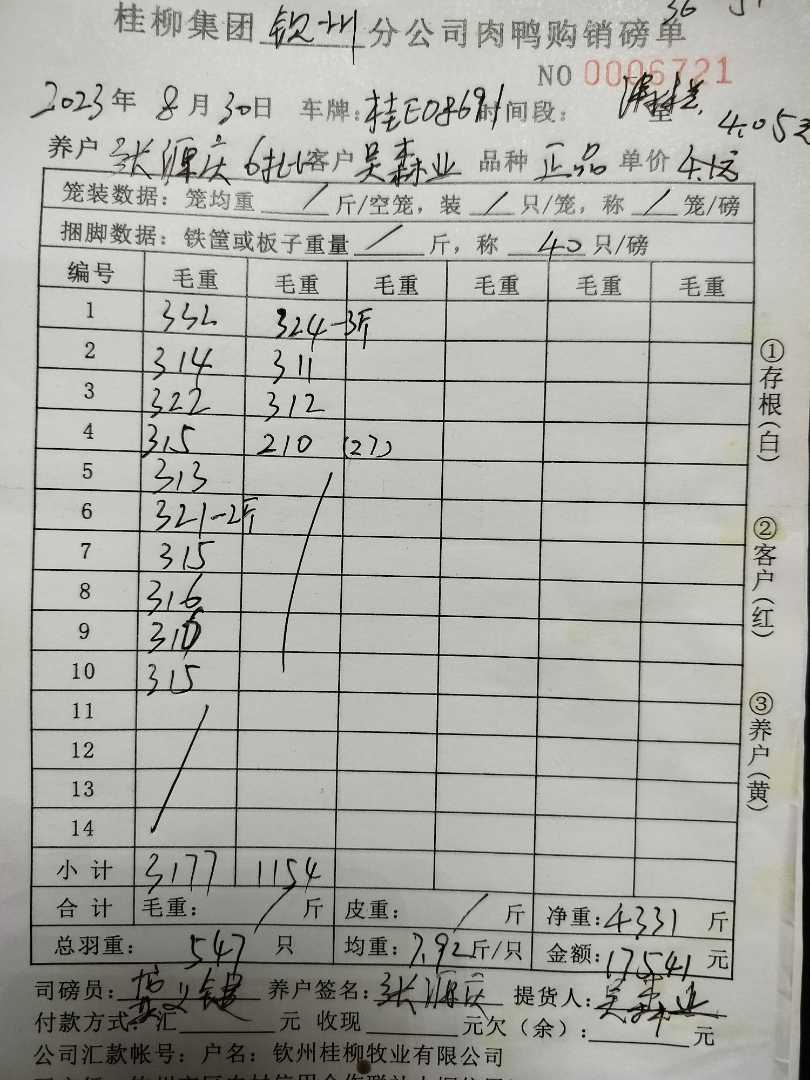 桂柳集团 钦州 分公司肉鸭购销磅单
NO 0006721
2023年 8月30日 车牌:桂E08691 时间段:
4.05元
养户 张源庆 客户 吴森业 品种 正品 单价 4.1元
笼装数据: 笼均重 / 斤/空笼, 装 / 只/笼, 称 / 笼/磅
捆脚数据: 铁筐或板子重量 / 斤, 称 40 只/磅
编号 毛重 毛重 毛重 毛重 毛重 毛重
1 332 324-3斤
2 314 311
3 322 312
4 315 210 (27)
5 313
6 321-2斤
7 315
8 316
9 316
10 315
11
12
13
14
小计 3177 1154
合计 毛重: / 斤 皮重: / 斤 净重:4331 斤
总羽重: 547 只 均重:7.92斤/只 金额:17541 元
司磅员: 养户签名:张源庆 提货人:吴森业
付款方式:汇 元 收现 元欠(余): 元
公司汇款帐号: 户名: 钦州桂柳牧业有限公司
①存根(白)
②客户(红)
③养户(黄)